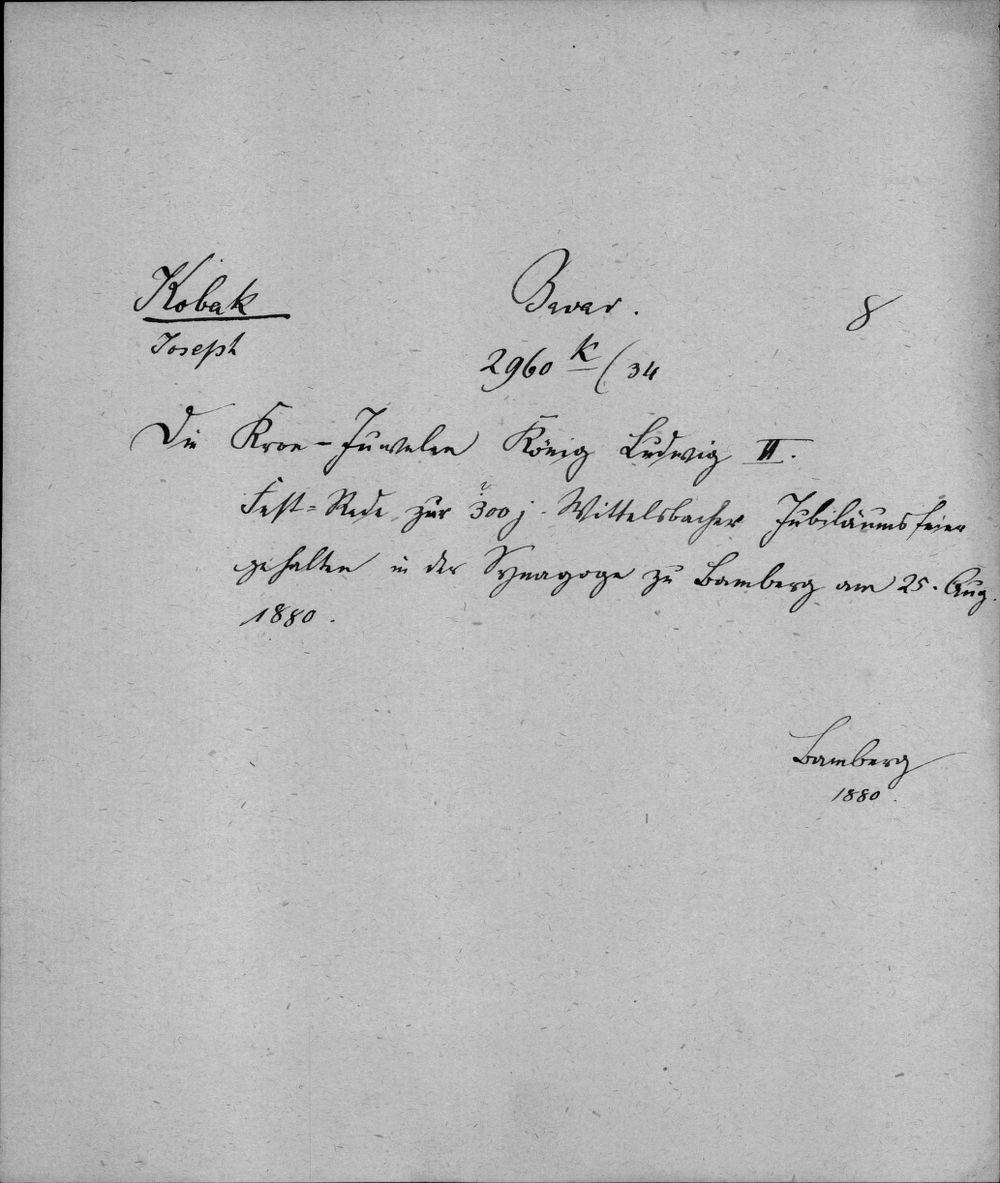 Kobak
Joseph
Bavar.
8
2960 k/34
Die Kron-Juwelen König Ludwig II.
Fest-Rede zur 300 j. Wittelsbacher Jubiläumsfeier
gehalten in der Synagoge zu Bamberg am 25. Aug.
1880.
Bamberg
1880.